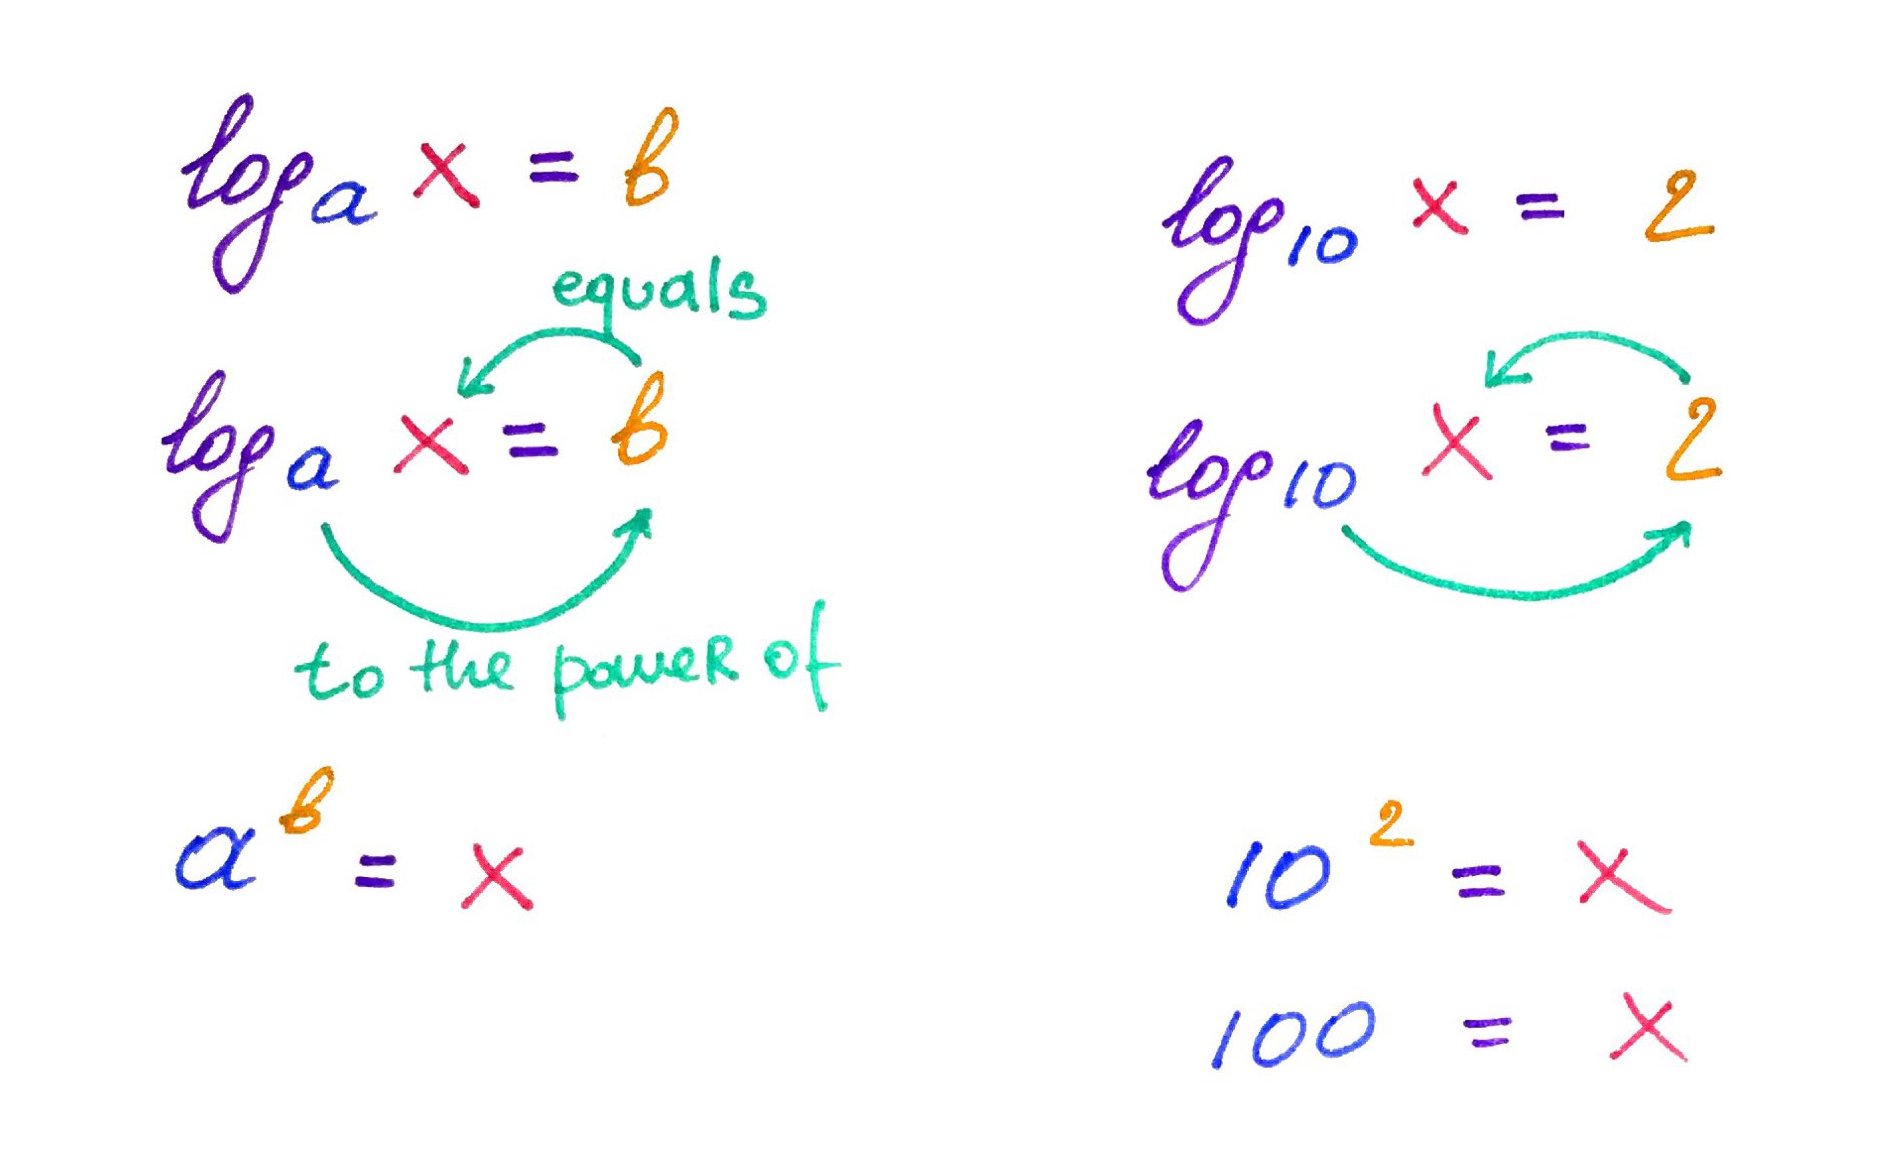 logₐ x = b
equals
logₐ x = b
to the power of
aᵇ = x
log₁₀ x = 2
log₁₀ x = 2
10² = x
100 = x